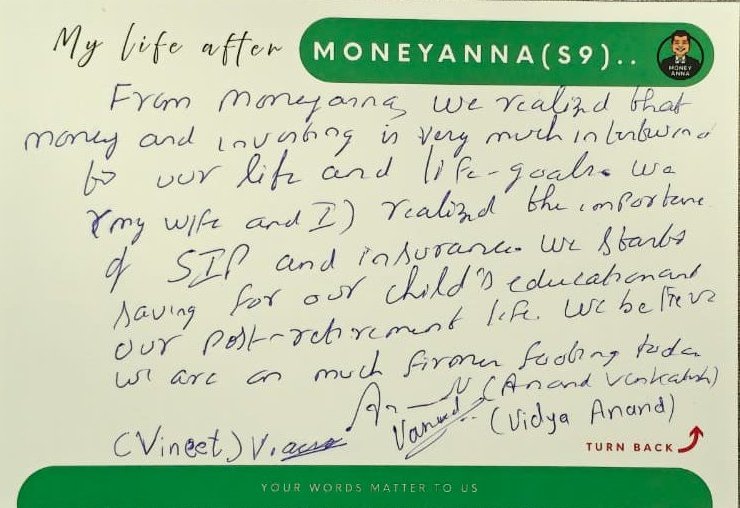 My life after MONEYANNA(S9)..
MONEY
ANNA
From moneyanna, we realized that
money and investing is very much intertwined
to our life and life-goals. We
(my wife and I) realized the importance
of SIP and insurance. We started
saving for our child's education and
our post-retirement life. We believe
we are on much firmer footing today
(Anand Venkatesh)
(Vidya Anand)
(Vineet)
TURN BACK
YOUR WORDS MATTER TO US